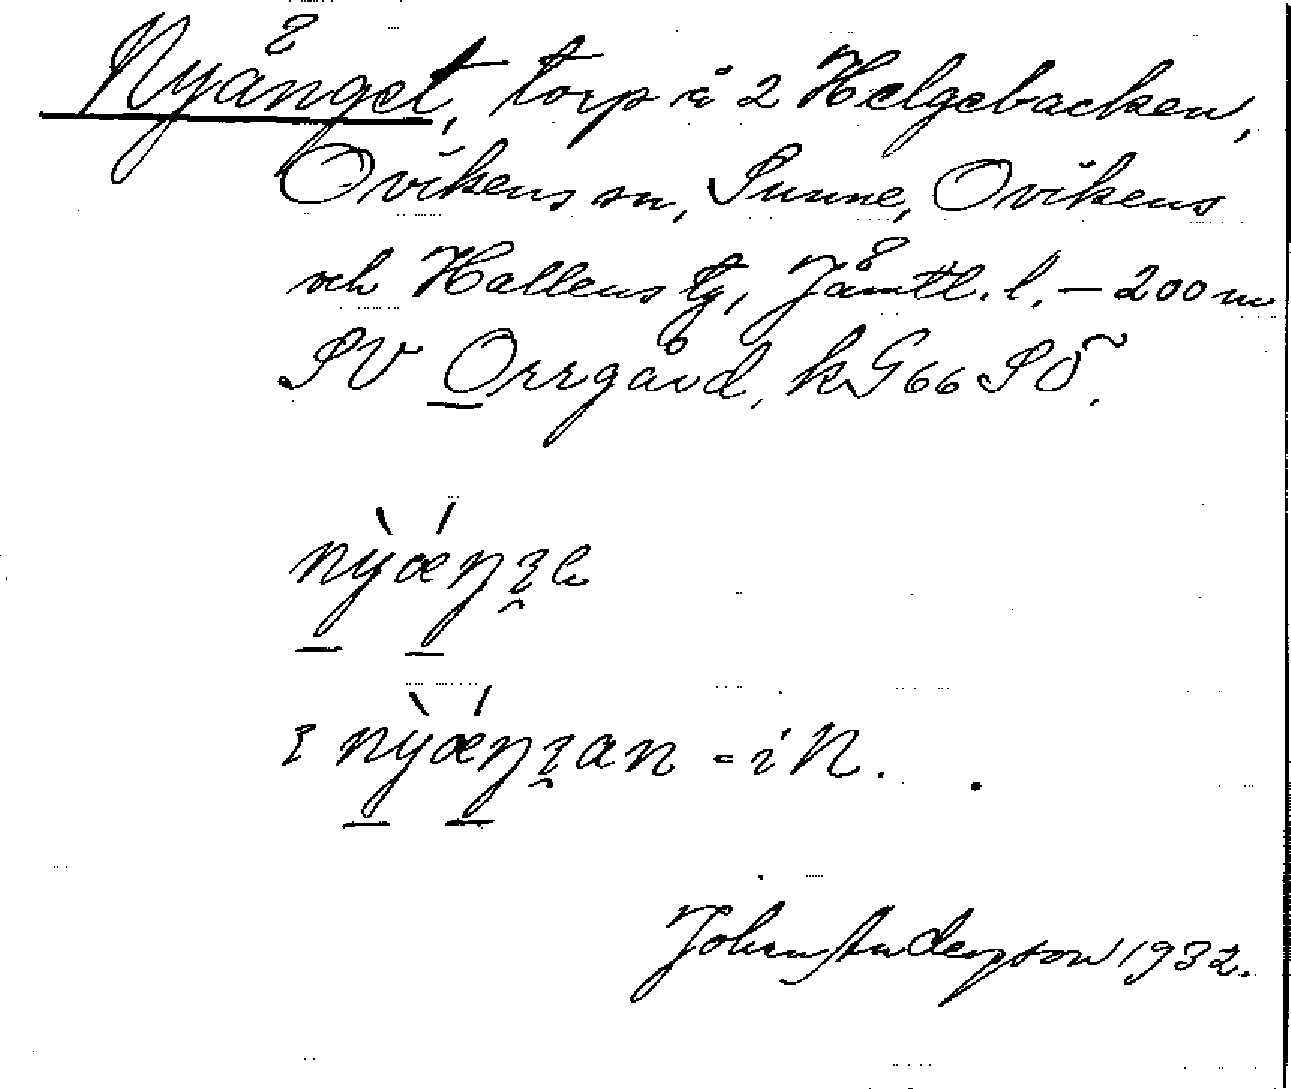 Nyänget, torp å 2 Helgebacken,
Ovikens sn, Sunne, Ovikens
och Hallens tg, Jämtl. l. – 200 m
SV Orrgård, kG66SÖ.
nỳǽŋʒe
ɪ nỳǽŋʒan = i N.
John Anderson 1932.